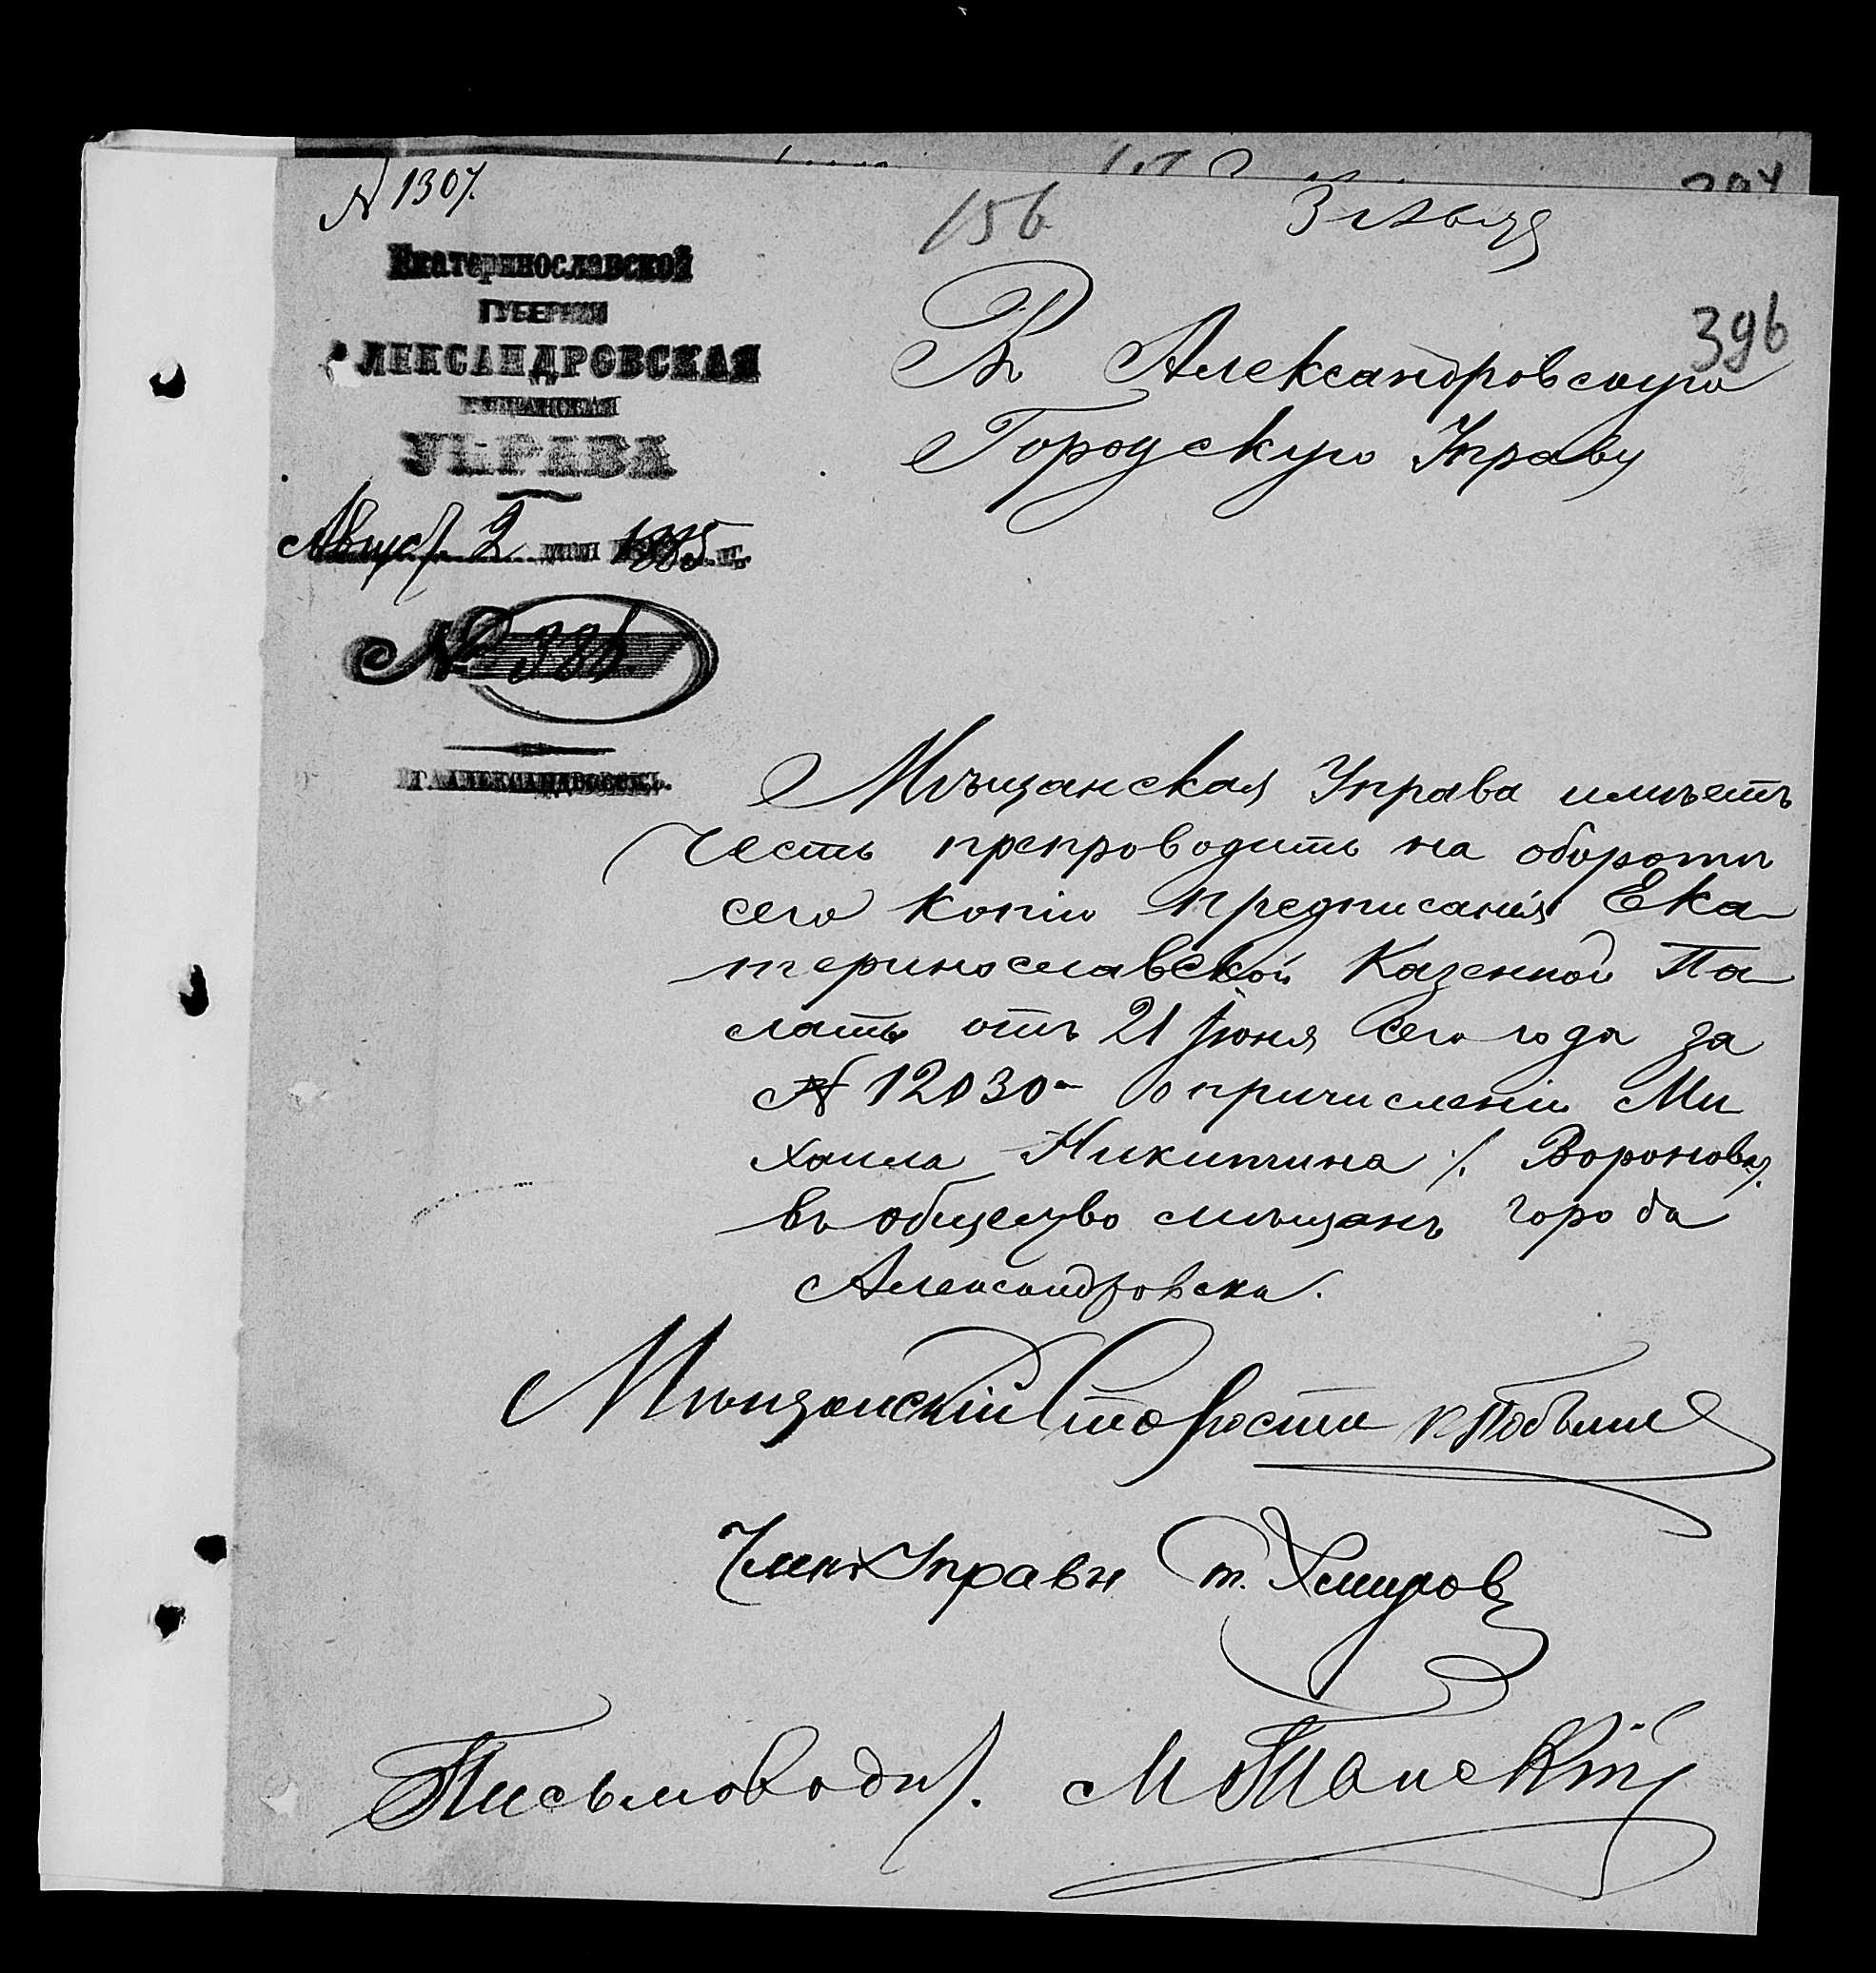 № 1307.
156
3 Авг
396
Екатеринославской
ГУБЕРНИИ
АЛЕКСАНДРОВСКАЯ
МѢЩАНСКАЯ
УПРАВА
Август. 2 дня 1885 г.
№
Г. АЛЕКСАНДРОВСКЪ.
Въ Александровскую
Городскую Управу
Мѣщанская Управа имѣетъ
честь препроводить на оборотѣ
сего копію предписанія Ека-
теринославской Казенной Па-
латы отъ 21 Іюня сего года за
№ 12030 о причисленіи Ми
хаила Никитина /. Воронова/.
въ общество мѣщанъ города
Александровска.
Мѣщанскій Староста
Членъ Управы
Письмоводит.